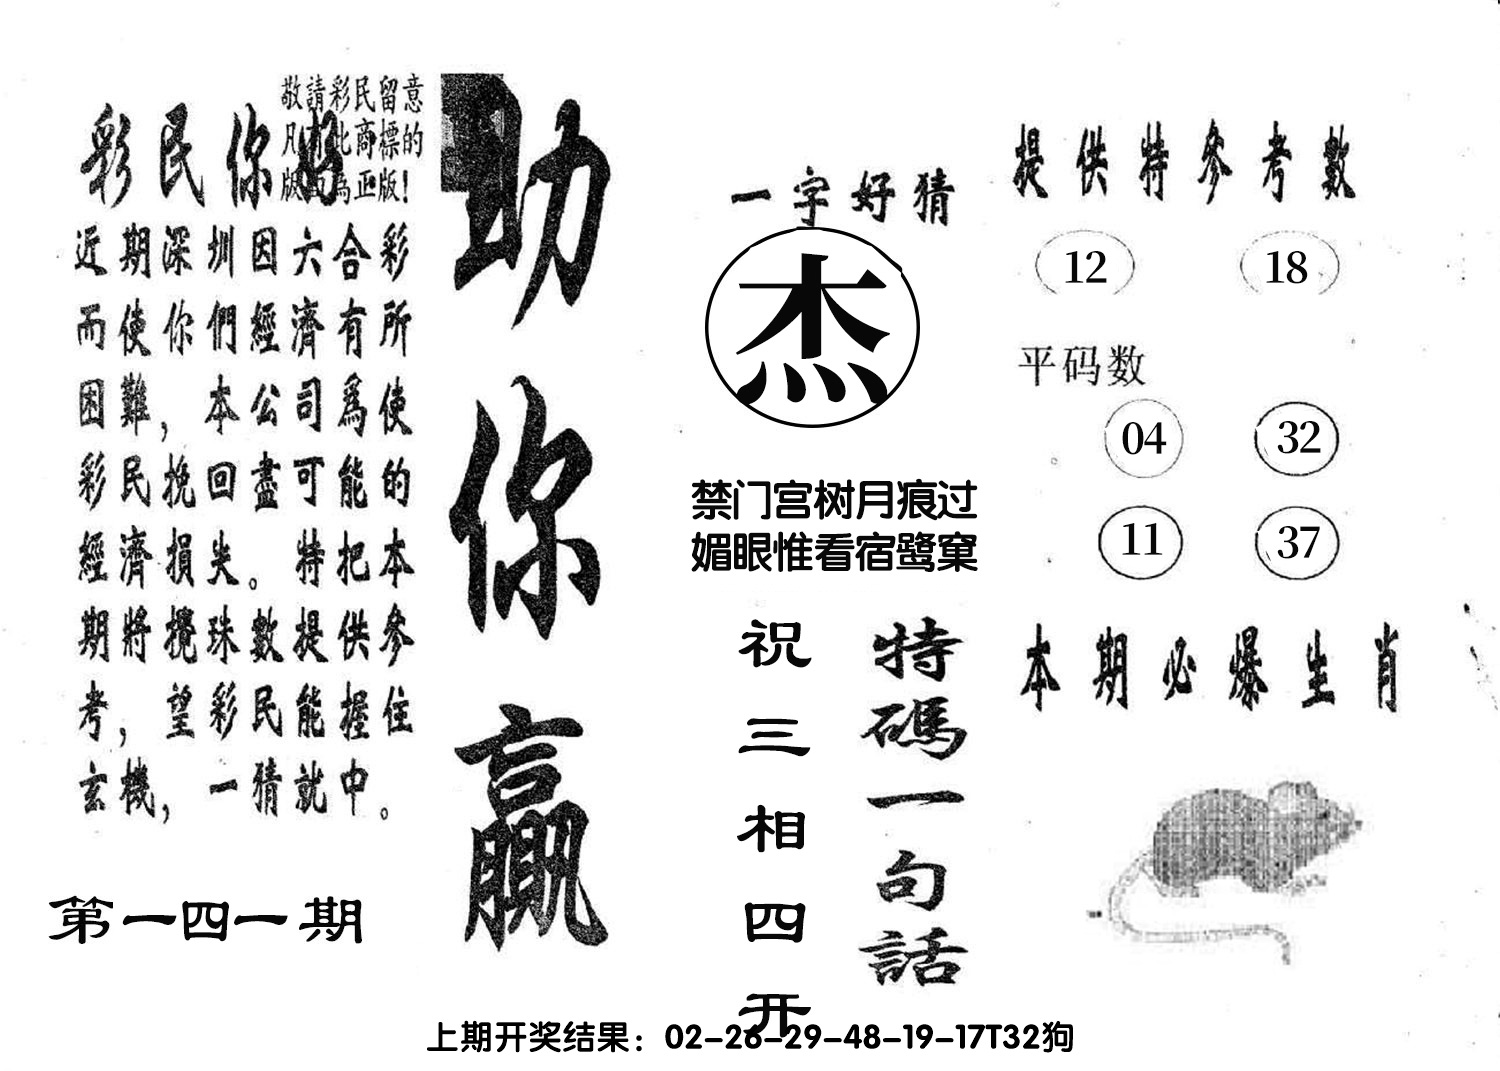 敬請彩民留意
凡有此商標的
版面為正版！
彩民你好
近期深圳因六合彩
而使你們經濟有所
困難，本公司爲使
彩民挽回盡可能的
經濟損失。特把本
期將攪珠數提供參
考，望彩民能握住
玄機，一猜就中。
第一四一期
助你贏
一字好猜
杰
禁门宫树月痕过
媚眼惟看宿鹭窠
特碼一句話
祝三相四开
提供特參考數
12 18
平码数
04 32
11 37
本期必爆生肖
上期开奖结果：02-26-29-48-19-17T32狗